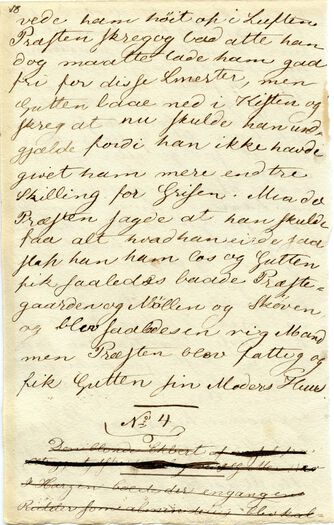 18
vede ham höit op i Luften
Præsten skreg og bad atte han
dog maatte lade ham gaa
fri for disse Smerter, men
Gutten laae ned i Kisten og
skreg at nu skulde han und
gjælde fordi han ikke havde
givet ham mere end tre
Skilling for Grisen. Men da
Præsten sagde at han skulde
faa alt hvad han eiede saa
slap han ham los og Gutten
fik saaledes baade Præste-
gaarden og Möllen og Skoven
og blev saaledes en rig Mand
men Præsten blev fattig og
fik Gutten sin Moders Huus.
No 4
Harzen boede der engang en
Ridder som